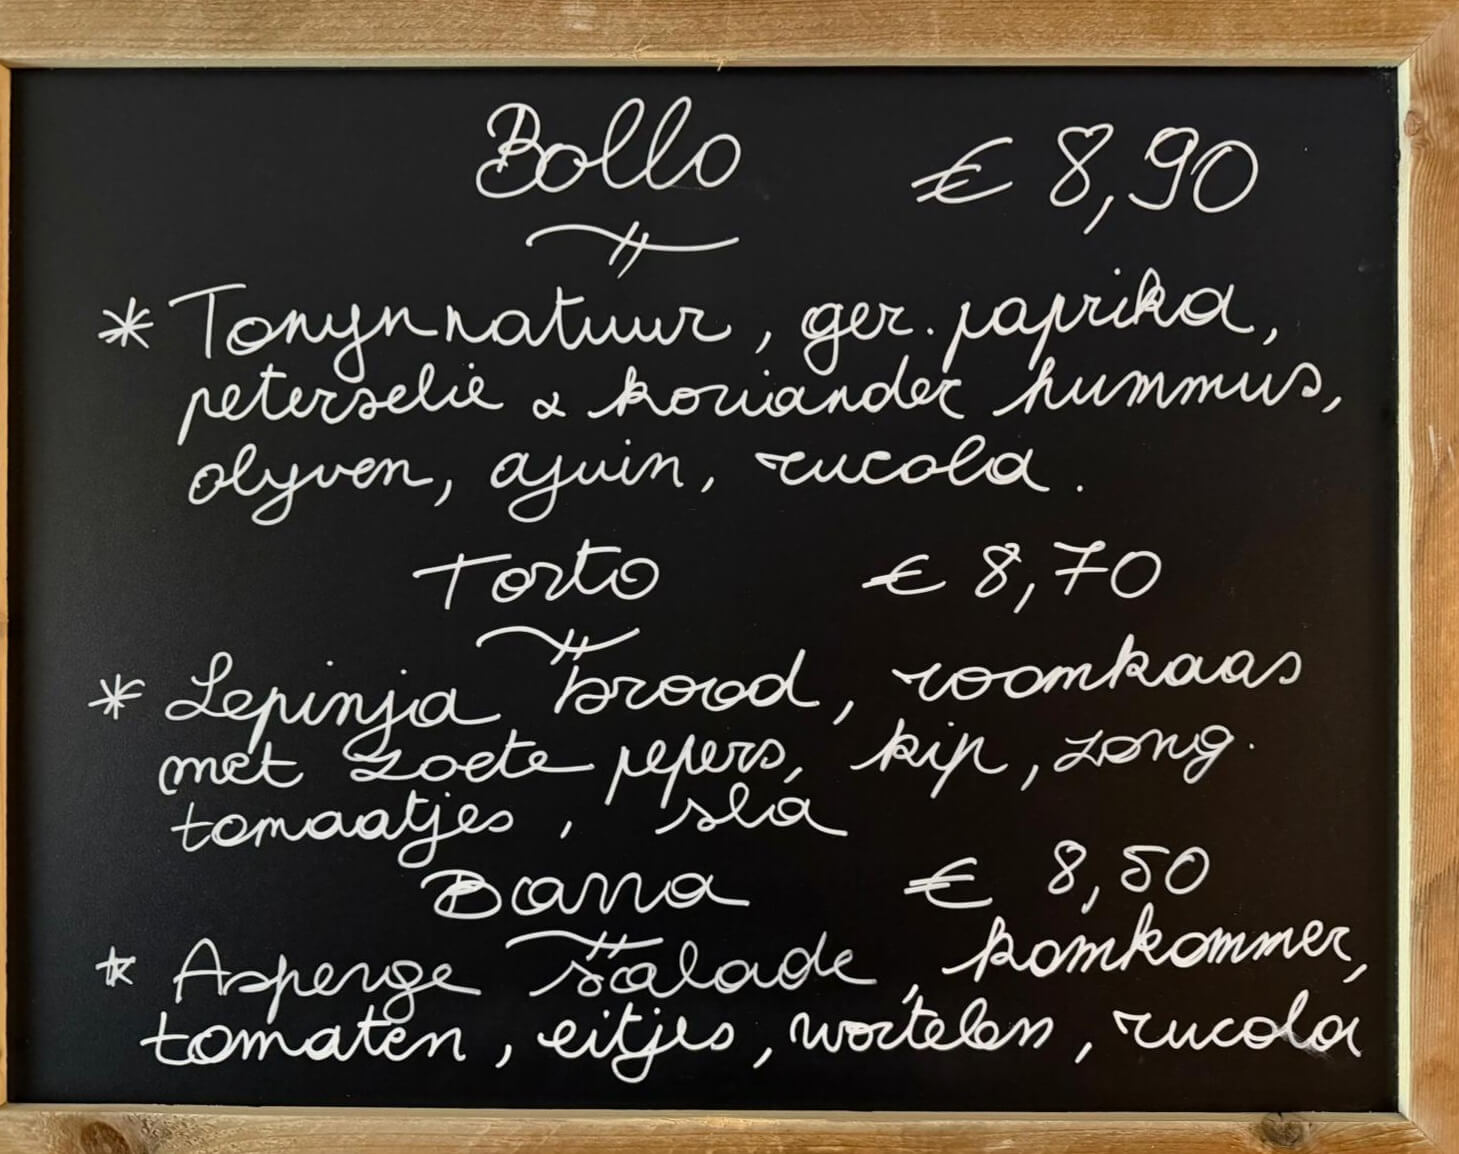 Bollo € 8,90
* Tonynnatuur, ger. paprika,
peterselie & koriander hummus,
olyven, ajuin, rucola.
Torto € 8,70
* Lepinja brood, roomkaas
met zoete pepers, kip, zong.
tomaatjes, sla
Barra € 8,50
* Asperge salade, komkommer,
tomaten, eitjes, wortelen, rucola